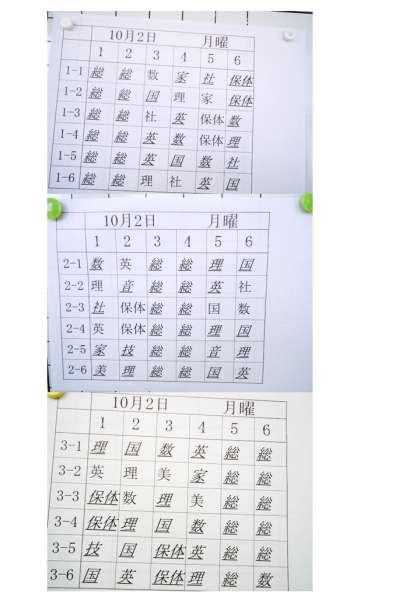 10月2日 月曜
1 2 3 4 5 6
1-1 総 総 数 家 社 保体
1-2 総 総 国 理 家 保体
1-3 総 総 社 英 保体 数
1-4 総 総 英 数 保体 理
1-5 総 総 英 国 数 社
1-6 総 総 理 社 英 国
10月2日 月曜
1 2 3 4 5 6
2-1 数 英 総 総 理 国
2-2 理 音 総 総 英 社
2-3 社 保体 総 総 国 数
2-4 英 保体 総 総 理 国
2-5 家 技 総 総 音 理
2-6 美 理 総 総 国 英
10月2日 月曜
1 2 3 4 5 6
3-1 理 国 数 英 総 総
3-2 英 理 美 家 総 総
3-3 保体 数 理 美 総 総
3-4 保体 理 国 数 総 総
3-5 技 国 保体 英 総 総
3-6 国 英 保体 理 総 数